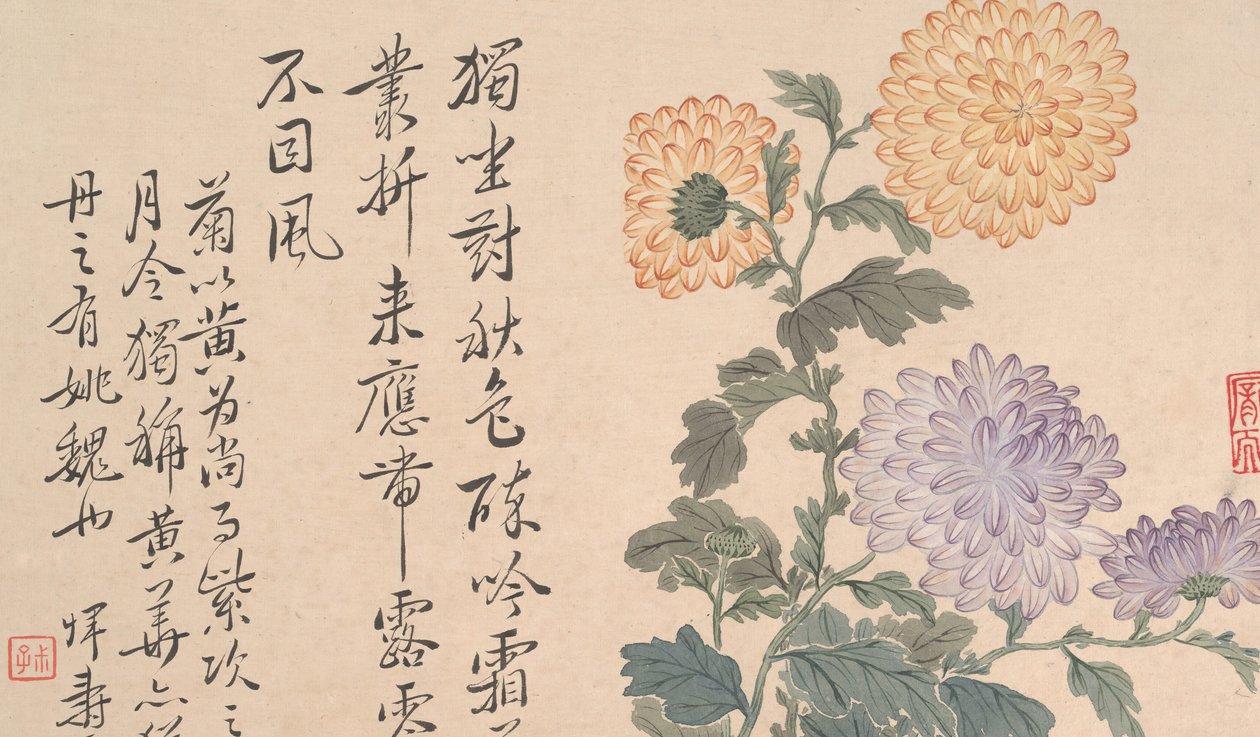 獨坐對秋色醉吟霜
叢折来應帶露零
不因風
菊以黄为尚而紫次之
月令獨稱黄華亦猶
丹之有姚魏也 惲壽